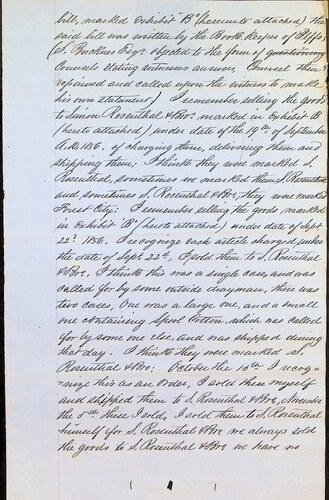 bill, marked Exhibit "B" (hereunto attached) the
said bill was written by the Book Keeper of Plffs
(S. Buckner Esqr objected to the form of questioning
Counsels stating witnesses answer, Counsel then
repaired and called upon the witness to make
his own statement) I remember selling the goods
to Simon Rosenthal & Bro. marked in Exhibit B
(hereto attached) under date of the 19th of September
A.D. 1856. of charging them, delivering them and
shipping them; I think they were marked S.
Rosenthal, sometimes we marked them S. Rosenthal
and sometimes S. Rosenthal & Bro, they were marked
Forest City; I remember selling the goods marked
in Exhibit "B" (hereto attached) under date of Sept
22d 1856. I recognize each article charged under
the date of Sept 22d, I sold them to S. Rosenthal
& Bro, I think this was a single case, and was
called for by some outside drayman, there was
two cases, One was a large one, and a small
one containing Spool Cotton, which was called
for by some one else, and was shipped during
that day. I think they were marked S.
Rosenthal & Bro: October the 10th I recog-
nize this as an Order, I sold them myself
and shipped them to S. Rosenthal & Bro, November
the 5th these I sold, I sold them to S. Rosenthal
himself for S. Rosenthal & Bro we always sold
the goods to S. Rosenthal & Bro we have no